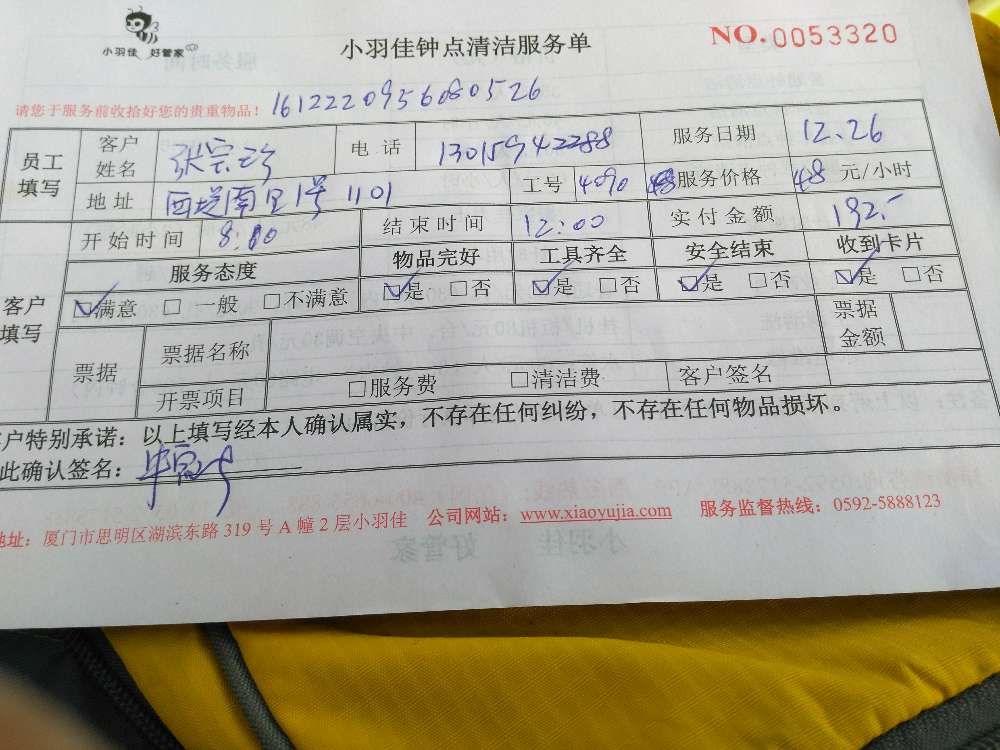 小羽佳 好管家
小羽佳钟点清洁服务单
NO.0053320
请您于服务前收拾好您的贵重物品! 1612220956080526
员工填写 客户姓名 张宗珍 电话 13015942288 服务日期 12.26
地址 西堤南里1号 1101 工号 4090 服务价格 48 元/小时
客户填写 开始时间 8:00 结束时间 12:00 实付金额 192.-
服务态度 物品完好 工具齐全 安全结束 收到卡片
☑满意 □一般 □不满意 ☑是 □否 ☑是 □否 ☑是 □否 ☑是 □否
票据 票据名称 票据金额
开票项目 □服务费 □清洁费 客户签名
客户特别承诺：以上填写经本人确认属实，不存在任何纠纷，不存在任何物品损坏。
此确认签名：
地址：厦门市思明区湖滨东路 319 号 A 幢 2 层小羽佳 公司网站：www.xiaoyujia.com 服务监督热线：0592-5888123